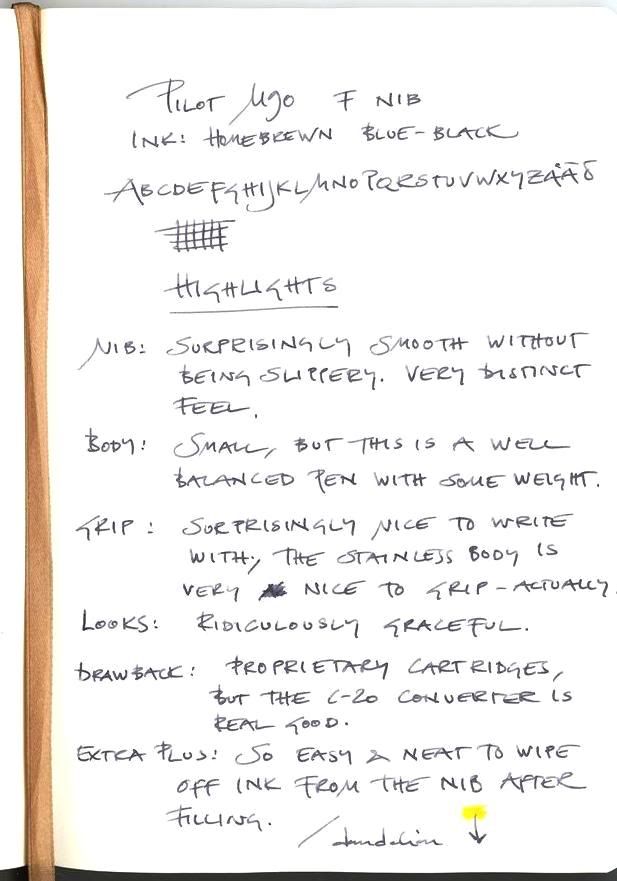 PILOT M90 F NIB
INK: HOMEBREWN BLUE-BLACK
ABCDEFGHIJKLMNOPQRSTUVWXYZÅÄÖ
HIGHLIGHTS
NIB: SURPRISINGLY SMOOTH WITHOUT
BEING SLIPPERY. VERY DISTINCT
FEEL.
BODY: SMALL, BUT THIS IS A WELL
BALANCED PEN WITH SOME WEIGHT.
GRIP: SURPRISINGLY NICE TO WRITE
WITH, THE STAINLESS BODY IS
VERY NICE TO GRIP - ACTUALLY.
LOOKS: RIDICULOUSLY GRACEFUL.
DRAWBACK: PROPRIETARY CARTRIDGES,
BUT THE C-20 CONVERTER IS
REAL GOOD.
EXTRA PLUS: SO EASY & NEAT TO WIPE
OFF INK FROM THE NIB AFTER
FILLING.
/dandelion ↓